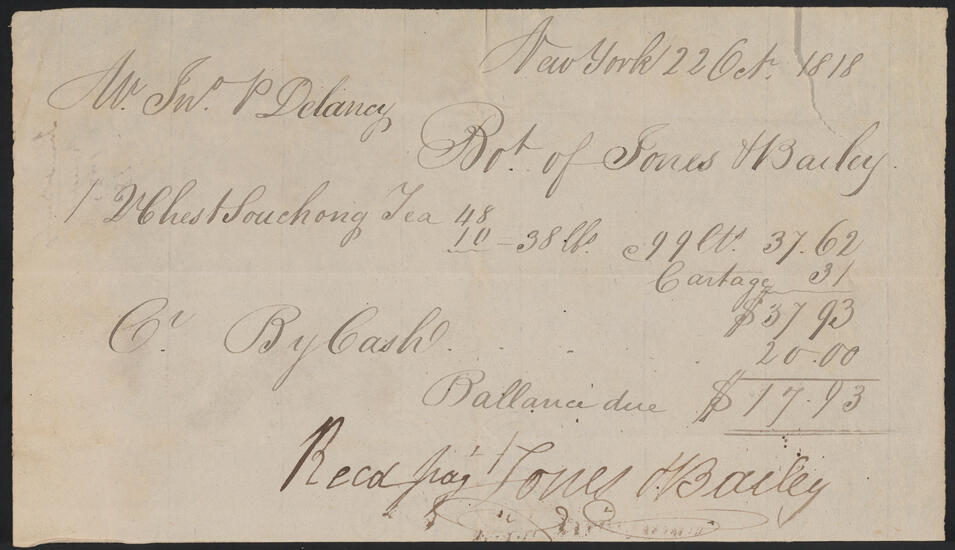 New York 22 Oct. 1818
Mr. Jno. P Delancy
Bot. of Jones & Bailey.
1 Chest Souchong Tea 48
10 – 38 lbs. 99 Cts. 37.62
Cartage 31
$37 93
Cr By Cash 20.00
Ballance due $17.93
Recd pay't Jones & Bailey